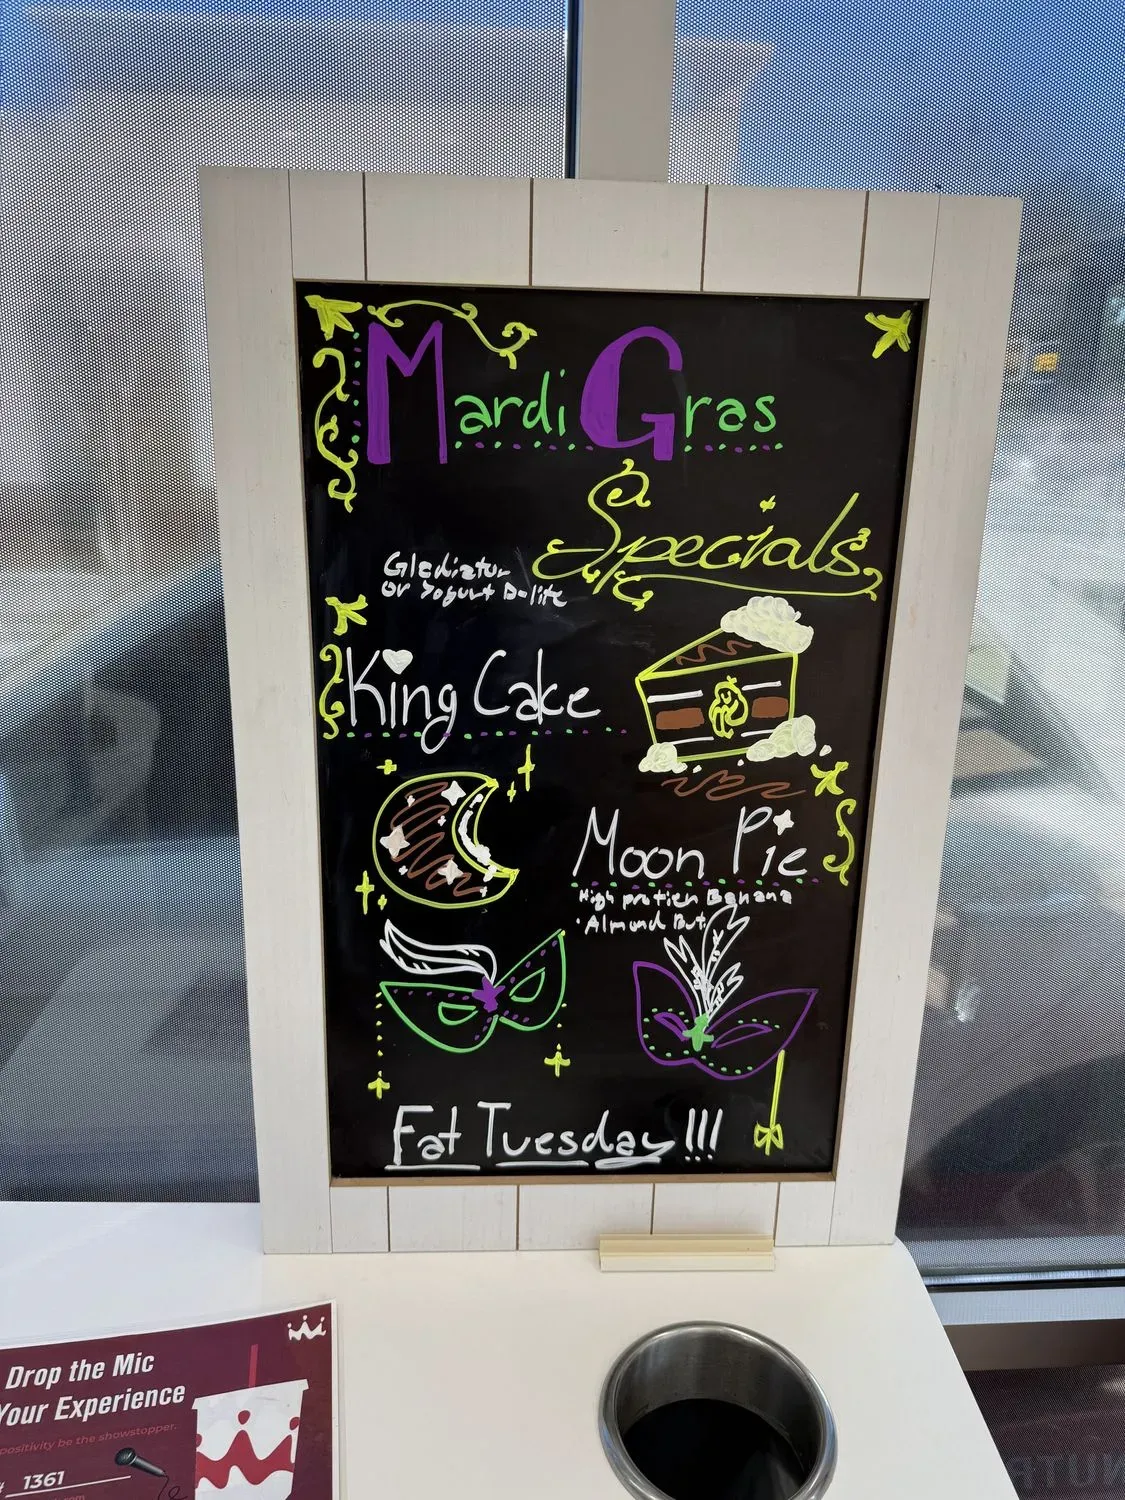 Mardi Gras
Specials
Glediator
or Yogurt D-lite
King Cake
Moon Pie
High protien Banana
· Almond But
Fat Tuesday!!!
Drop the Mic
Your Experience
positivity be the showstopper.
# 1361